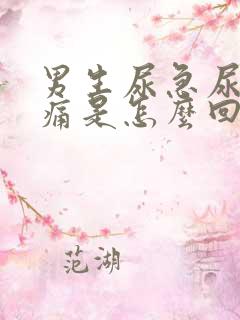 男生尿急尿
痛是怎麼回
范湖